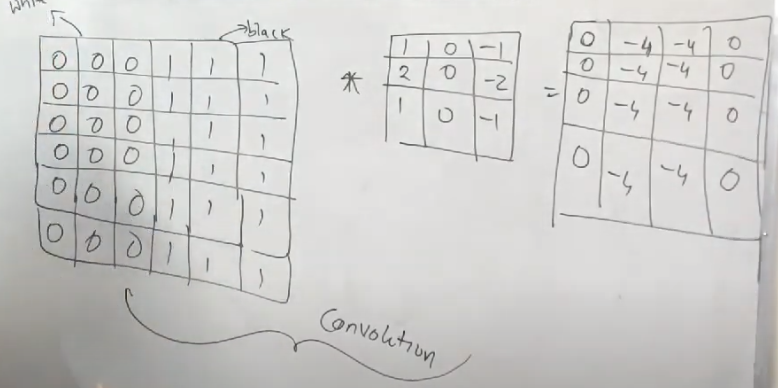 white
black
0 0 0 1 1 1
0 0 0 1 1 1
0 0 0 1 1 1
0 0 0 1 1 1
0 0 0 1 1 1
0 0 0 1 1 1
*
1 0 -1
2 0 -2
1 0 -1
=
0 -4 -4 0
0 -4 -4 0
0 -4 -4 0
0 -4 -4 0
Convolution